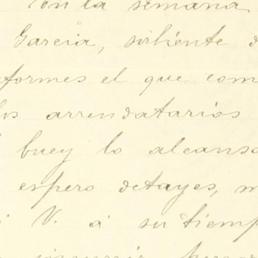 en la semana
Garcia, sirbiente d
formes el que com
los arrendatarios
buey lo alcanso
espero detayes, m
V. á su tiemp